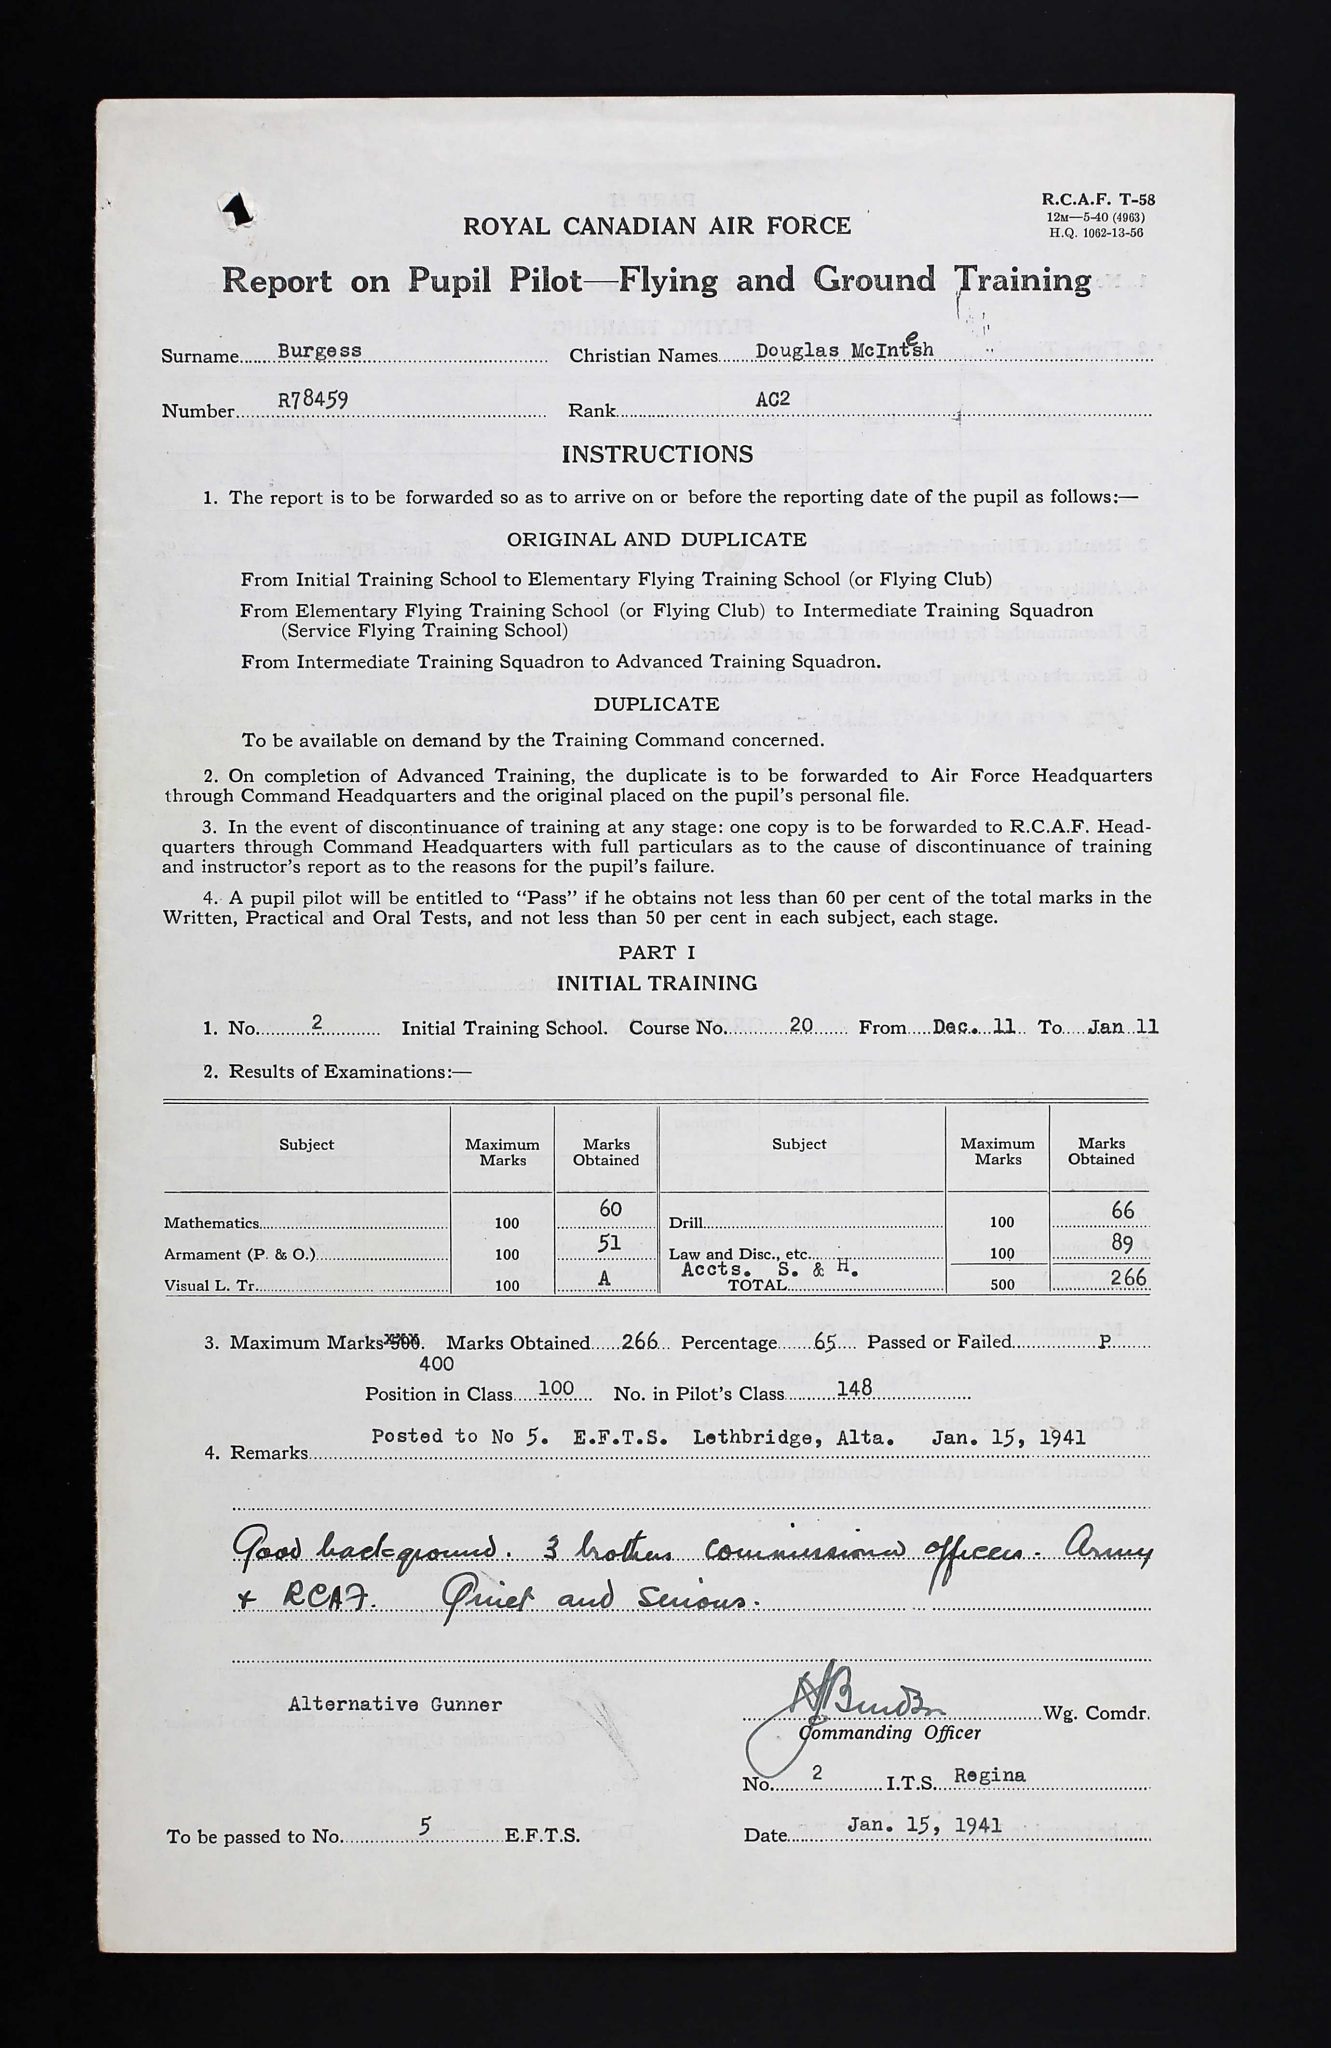 R.C.A.F. T-58
12M—5-40 (4963)
H.Q. 1062-13-56
ROYAL CANADIAN AIR FORCE
Report on Pupil Pilot—Flying and Ground Training
Surname Burgess Christian Names Douglas McIntesh
Number R78459 Rank AC2
INSTRUCTIONS
1. The report is to be forwarded so as to arrive on or before the reporting date of the pupil as follows:—
ORIGINAL AND DUPLICATE
From Initial Training School to Elementary Flying Training School (or Flying Club)
From Elementary Flying Training School (or Flying Club) to Intermediate Training Squadron
(Service Flying Training School)
From Intermediate Training Squadron to Advanced Training Squadron.
DUPLICATE
To be available on demand by the Training Command concerned.
2. On completion of Advanced Training, the duplicate is to be forwarded to Air Force Headquarters
through Command Headquarters and the original placed on the pupil's personal file.
3. In the event of discontinuance of training at any stage: one copy is to be forwarded to R.C.A.F. Head-
quarters through Command Headquarters with full particulars as to the cause of discontinuance of training
and instructor's report as to the reasons for the pupil's failure.
4. A pupil pilot will be entitled to "Pass" if he obtains not less than 60 per cent of the total marks in the
Written, Practical and Oral Tests, and not less than 50 per cent in each subject, each stage.
PART I
INITIAL TRAINING
1. No. 2 Initial Training School. Course No. 20 From Dec. 11 To Jan 11
2. Results of Examinations:—
Subject Maximum Marks Marks Obtained Subject Maximum Marks Marks Obtained
Mathematics 100 60 Drill 100 66
Armament (P. & O.) 100 51 Law and Disc., etc. 100 89
Accts. S. & H.
Visual L. Tr. 100 A TOTAL 500 266
3. Maximum Marks 500. Marks Obtained 266 Percentage 65 Passed or Failed P.
400
Position in Class 100 No. in Pilot's Class 148
4. Remarks Posted to No 5. E.F.T.S. Lethbridge, Alta. Jan. 15, 1941
Good background. 3 brothers commissioned officers. Army
+ RCAF. Quiet and Serious.
Alternative Gunner
Wg. Comdr.
Commanding Officer
No. 2 I.T.S. Regina
To be passed to No. 5 E.F.T.S.
Date Jan. 15, 1941